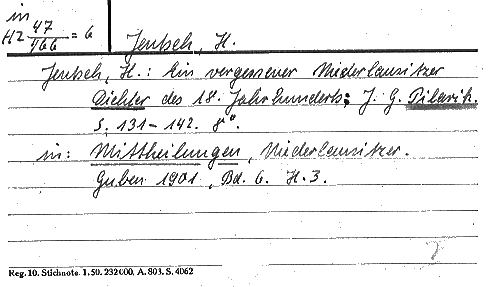 in
HZ 47/466 = 6
Jentsch, H.
Jentsch, H.: Ein vergessener Niederlausitzer
Dichter des 18. Jahrhunderts: J. G. Pilarik.
S. 131-142. 8°.
in: Mittheilungen, Niederlausitzer.
Guben 1901, Bd. 6. H. 3.
Reg. 10. Stichnote. 1. 50. 232000. A. 803. S. 4062